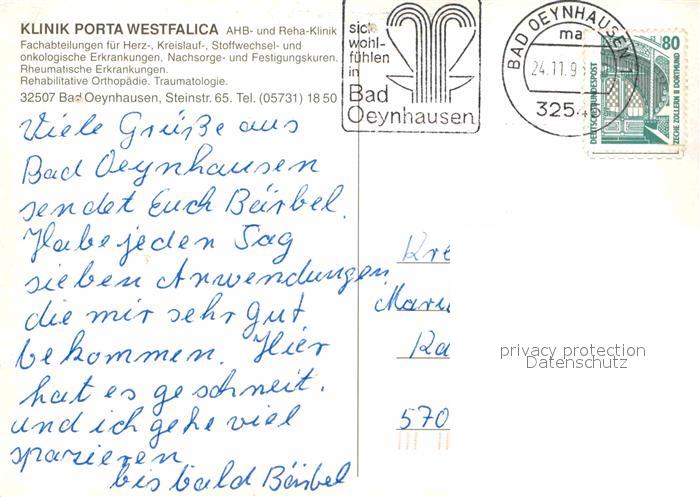 KLINIK PORTA WESTFALICA AHB- und Reha-Klinik
Fachabteilungen für Herz-, Kreislauf-, Stoffwechsel- und
onkologische Erkrankungen, Nachsorge- und Festigungskuren.
Rheumatische Erkrankungen.
Rehabilitative Orthopädie. Traumatologie.
32507 Bad Oeynhausen, Steinstr. 65. Tel. (05731) 18 50
sich
wohl-
fühlen
in
Bad
Oeynhausen
BAD OEYNHAUSEN
ma
24.11.9
325
80
DEUTSCHE BUNDESPOST
ZECHE ZOLLERN II DORTMUND
Viele Grüße aus
Bad Oeynhausen
sendet Euch Bärbel.
Habe jeden Tag
sieben Anwendungen
die mir sehr gut
bekommen. Hier
hat es geschneit.
und ich gehe viel
spazieren
bis bald Bärbel
Kre
Maru
Ka
570
privacy protection
Datenschutz